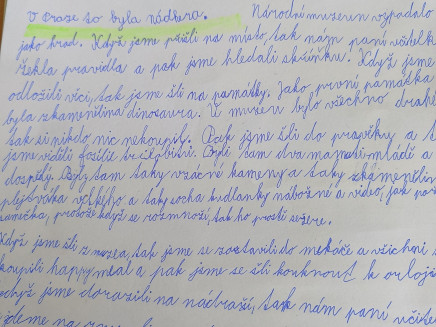 V Praze to byla nádhera. Národní muzeum vypadalo
jako hrad. Když jsme přišli na místo, tak nám paní učitelk
řekla pravidla a pak jsme hledali skříňku. Když jsme
odložili věci, tak jsme šli na památky. Jako první památka
byla zkamenělina dinosaura. V muzeu bylo všechno drahé
tak si nikdo nic nekoupil. Pak jsme šli do pravěku a t
jsme viděli fosilie trilobitů. Byli tam dva mamuti mládě a
dospělý. Byly tam taky vzácné kameny a taky zkamenělin
velkého a taky socha kudlanky nábožné a video, jak po
samička, protože když se rozmnoží, tak ho prostě sežere.
Když jsme šli z muzea, tak jsme se zastavili do mekáče a všichni s
koupili happy meal a pak jsme se šli kouknout k orloj
když jsme dorazili na nádraží, tak nám paní učite
jdeme na